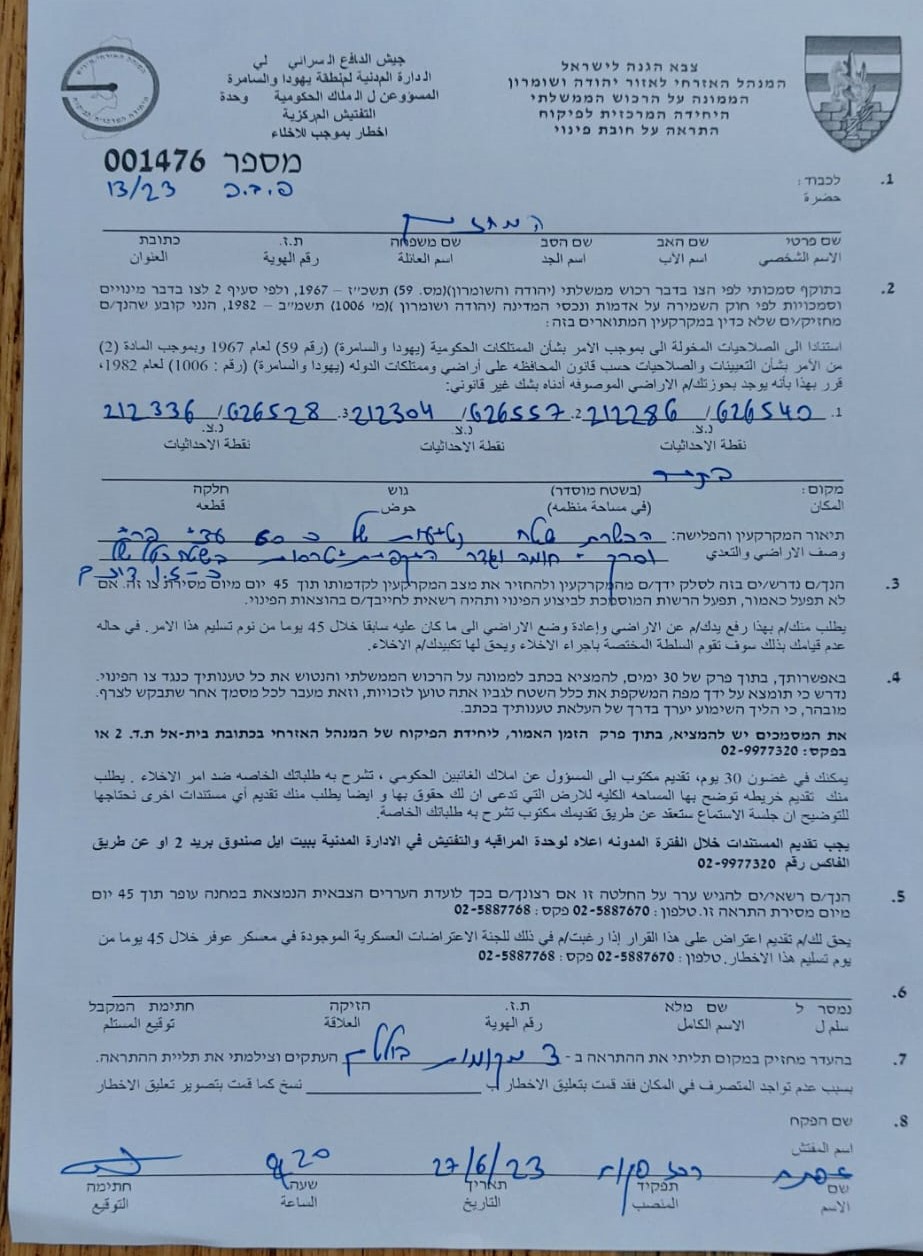 צבא הגנה לישראל
המנהל האזרחי לאזור יהודה ושומרון
הממונה על הרכוש הממשלתי
היחידה המרכזית לפיקוח
התראה על חובת פינוי
جيش الدافع السرائي لي
الدارة المدنية لمنطقة يهودا والسامرة
المسؤوعن ل الملاك الحكومية وحدة
التفتيش المركزية
اخطار بموجب للاخلاء
מספר 001476
פ.ב.כ 13/23
1. לכבוד:
حضرة
המחזיק
שם פרטי שם האב שם הסב שם משפחה ת.ז. כתובת
الاسم الشخصي اسم الاب اسم الجد اسم العائلة رقم الهوية العنوان
2. בתוקף סמכותי לפי הצו בדבר רכוש ממשלתי (יהודה והשומרון)(מס. 59) תשכ״ז – 1967, ולפי סעיף 2 לצו בדבר מינויים
וסמכויות לפי חוק השמירה על אדמות ונכסי המדינה (יהודה ושומרון )(מ׳ 1006) תשמ״ב – 1982, הנני קובע שהנך/ם
מחזיק/ים שלא כדין במקרקעין המתוארים בזה:
استنادا الى الصلاحيات المخولة الى بموجب الامر بشأن الممتلكات الحكومية (يهودا والسامرة) (رقم 59) لعام 1967 وبموجب المادة (2)
من الأمر بشأن التعيينات والصلاحيات حسب قانون المحافظه على أراضي وممتلكات الدوله (يهودا والسامرة) (رقم : 1006) لعام 1982،
قرر بهذا بأنه يوجد بحوزتك/م الاراضي الموصوفه أدناه بشك غير قانوني:
1. 212286 / 626540 2. 212304 / 626557 3. 212336 / 626528
נ.צ. נ.צ. נ.צ.
نقطة الاحداثيات نقطة الاحداثيات نقطة الاحداثيات
מקום: (בשטח מוסדר) גוש חלקה
المكان (في مساحة منظمه) حوض قطعه
תיאור המקרקעין והפלישה: הכשרת שטח נטיעות של כ 60 עצי
وصف الاراضي والتعدي חומה וגדר בשטח כולל של
3. הנך/ם נדרש/ים בזה לסלק ידך/ם מהמקרקעין ולהחזיר את מצב המקרקעין לקדמותו תוך 45 יום מיום מסירת צו זה. אם
לא תפעל כאמור, תפעל הרשות המוסמכת לביצוע הפינוי ותהיה רשאית לחייבך/ם בהוצאות הפינוי.
يطلب منك/م بهذا رفع يدك/م عن الاراضي وإعادة وضع الاراضي الى ما كان عليه سابقا خلال 45 يوما من نوم تسليم هذا الامر. في حاله
عدم قيامك بذلك سوف تقوم السلطة المختصة باجراء الاخلاء ويحق لها تكبيدك/م الاخلاء.
4. באפשרותך, בתוך פרק של 30 ימים, להמציא בכתב לממונה על הרכוש הממשלתי והנטוש את כל טענותיך כנגד צו הפינוי.
נדרש כי תומצא על ידך מפה המשקפת את כלל השטח לגביו אתה טוען לזכויות, וזאת מעבר לכל מסמך אחר שתבקש לצרף.
מובהר, כי הליך השימוע יערך בדרך של העלאת טענותיך בכתב.
את המסמכים יש להמציא, בתוך פרק הזמן האמור, ליחידת הפיקוח של המנהל האזרחי בכתובת בית-אל ת.ד. 2 או
בפקס: 02-9977320
يمكنك في غضون 30 يوم، تقديم مكتوب الى المسؤول عن املاك الغائبين الحكومي ، تشرح به طلباتك الخاصه ضد امر الاخلاء . يطلب
منك تقديم خريطه توضح بها المساحه الكليه للارض التي تدعى ان لك حقوق بها و ايضا يطلب منك تقديم أي مستندات اخرى نحتاجها
للتوضيح ان جلسة الاستماع ستعقد عن طريق تقديمك مكتوب تشرح به طلباتك الخاصة.
يجب تقديم المستندات خلال الفترة المدونه اعلاه لوحدة المراقبه والتفتيش في الادارة المدنية ببيت ايل صندوق بريد 2 او عن طريق
الفاكس رقم 02-9977320
5. הנך/ם רשאי/ים להגיש ערר על החלטה זו אם רצונך/ם בכך לועדת העררים הצבאית הנמצאת במחנה עופר תוך 45 יום
מיום מסירת התראה זו. טלפון: 02-5887670 פקס: 02-5887768
يحق لك/م تقديم اعتراض على هذا القرار إذا رغبت/م في ذلك للجنة الاعتراضات العسكرية الموجودة في معسكر عوفر خلال 45 يوما من
يوم تسليم هذا الاخطار. טלפון: 02-5887670 פקס: 02-5887768
6.
נמסר ל שם מלא ת.ז. הזיקה חתימת המקבל
سلم ل الاسم الكامل رقم الهوية العلاقة توقيع المستلم
7. בהעדר מחזיק במקום תליתי את ההתראה ב- 3 מקומות בולטים העתקים וצילמתי את תליית ההתראה.
بسبب عدم تواجد المتصرف في المكان فقد قمت بتعليق الاخطار ب نسخ كما قمت بتصوير تعليق الاخطار
8. שם הפקח
اسم المفتش
רכז פיקוח 27/6/23 9:20
שם תפקיד תאריך שעה חתימה
الاسم المنصب التاريخ الساعة التوقيع